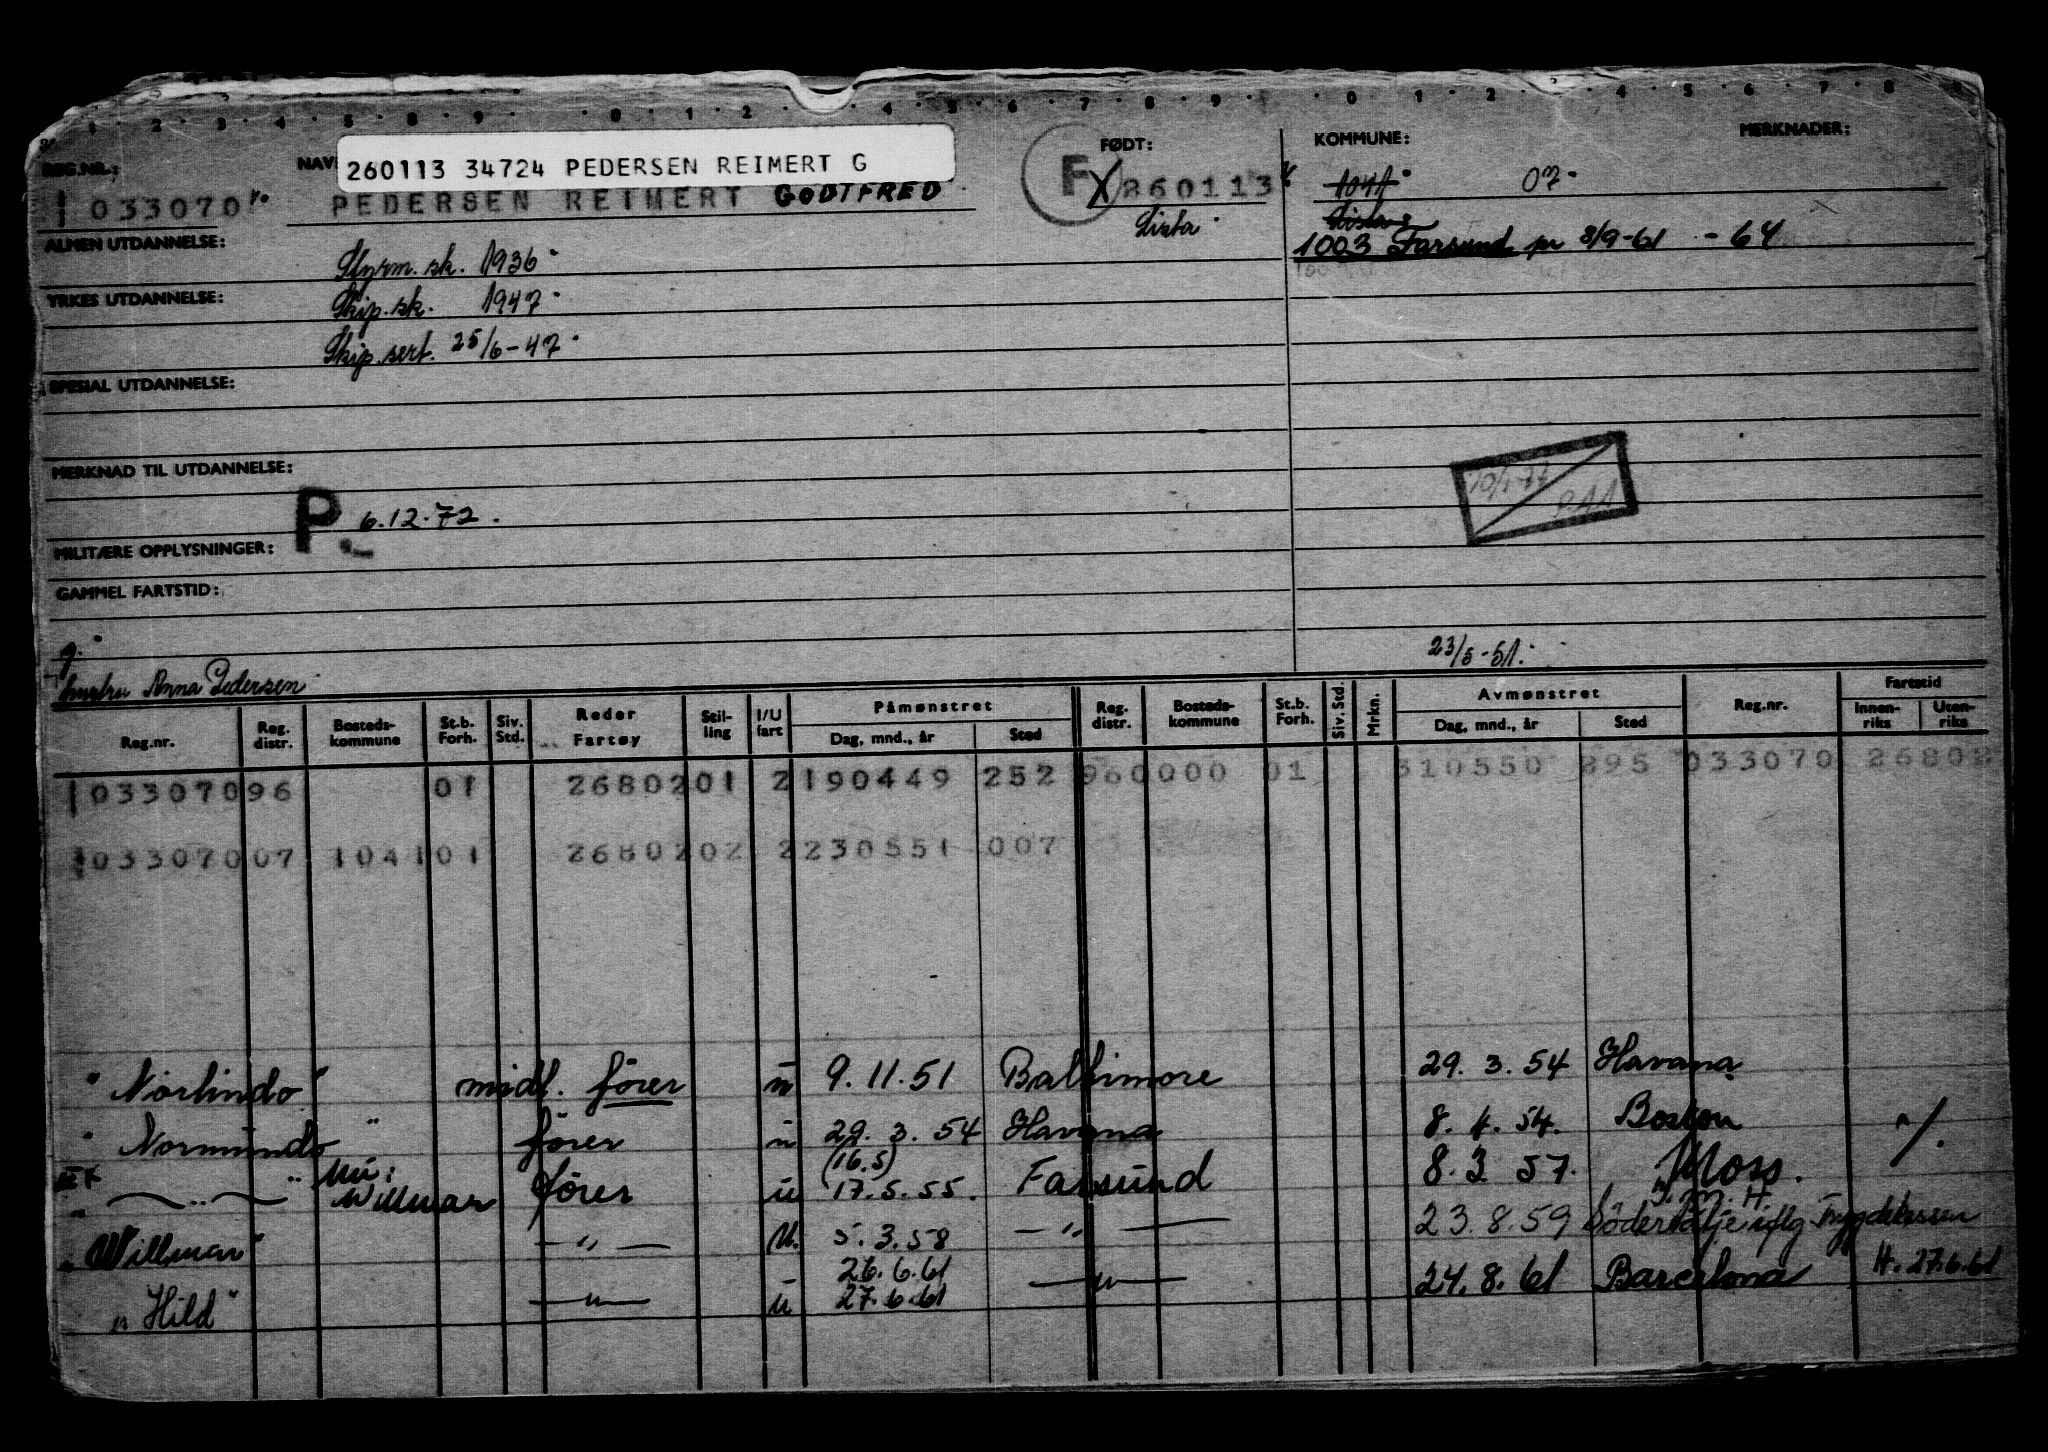 1 2 3 4 5 6 7 8 9 0 1 2 4 5 6 7 8 9 0 1 2 4 5 6 7 8
REG.NR.: NAV 260113 34724 PEDERSEN REIMERT G FØDT: KOMMUNE: MERKNADER:
033070 PEDERSEN REIMERT GODTFRED F X 260113 1041 07
Lista Lista
ALMEN UTDANNELSE: Styrm. sk. 1936 1003 Farsund pr 8/9-61 - 64
YRKES UTDANNELSE: Skip. sk. 1947
Skip. sert. 25/6-47
SPESIAL UTDANNELSE:
MERKNAD TIL UTDANNELSE:
P. 6.12.72.
MILITÆRE OPPLYSNINGER:
GAMMEL FARTSTID:
g. 23/5-51.
hustru Anna Pedersen
Reg.nr. Reg. distr. Bosteds-kommune St.b. Forh. Siv. Std. Reder Fartøy Stil-ling I/U fart Påmønstret Dag, mnd., år Sted Reg. distr. Bosteds-kommune St.b. Forh. Siv. Std. Mrkn. Avmønstret Dag, mnd., år Sted Reg.nr. Fartstid Innen-riks Uten-riks
033070 96 01 26802 01 2 190449 252 960000 01 310550 895 033070 26802
033070 07 1041 01 26802 02 2 230551 007
"Norlindo" midl. fører u 9.11.51 Baltimore 29.3.54 Havana
"Normundo" fører u 29.3.54 Havana 8.4.54. Boston
" nu: Willmar fører u (16.5) 17.5.55. Farsund 8.3 57. Moss.
"Willmar" — " — U. 5.3.58 — " — 23.8.59 Södertälje iflg Trygdekassen
"Hild" — " — u 26.6.61 27.6.61 — " — 24.8.61 Barcelona H. 27.6.61